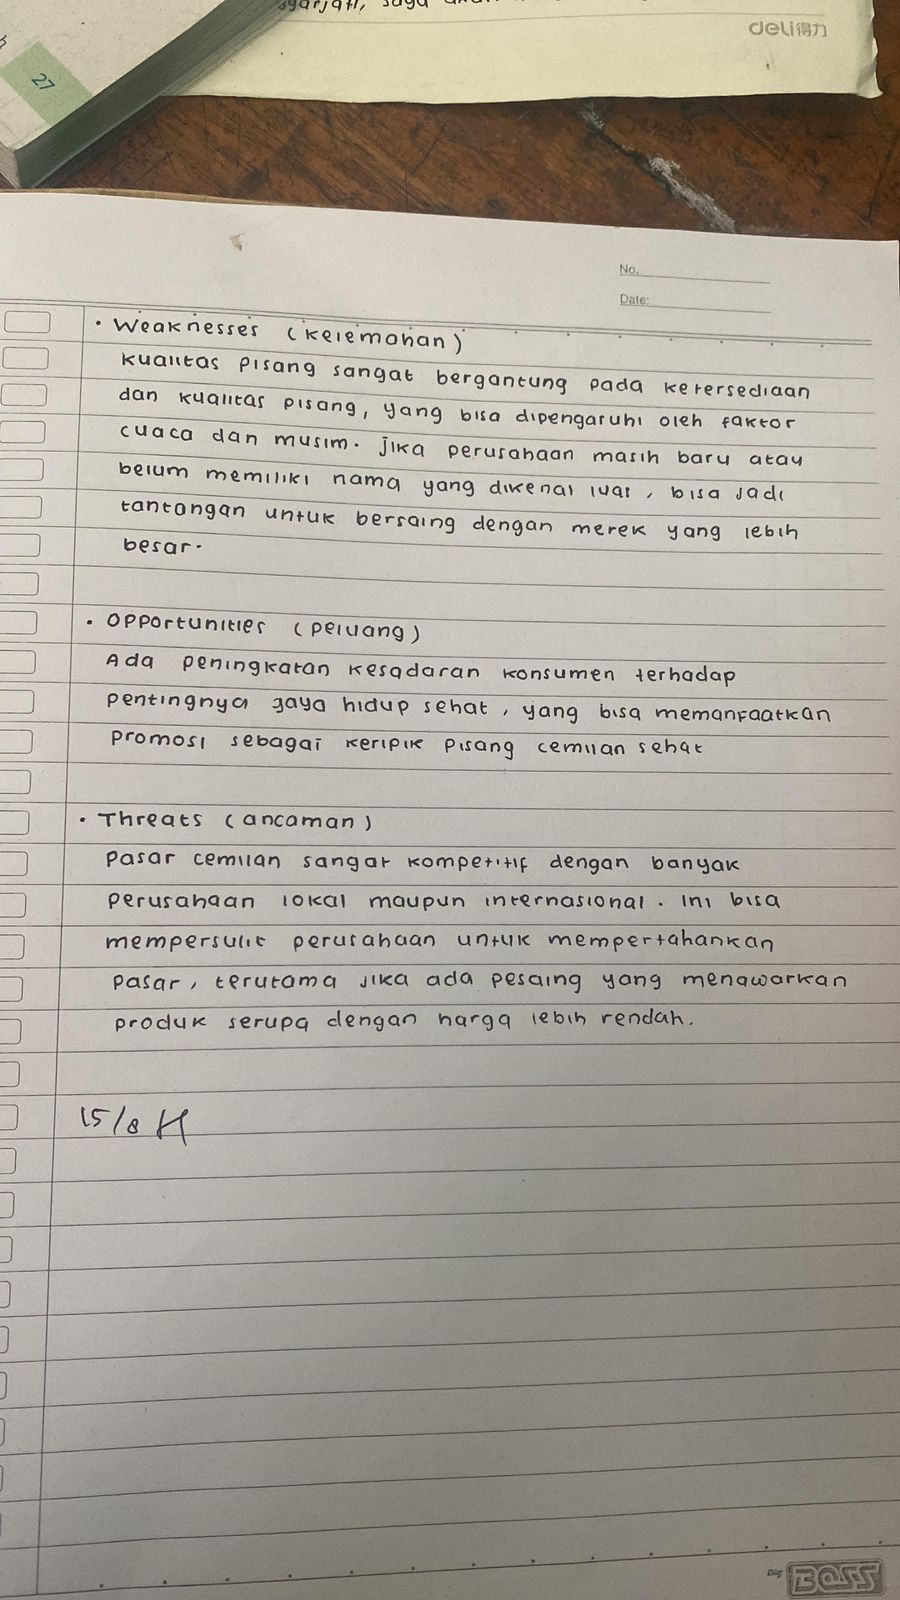 deli得力
27
No.
Date:
• Weaknesses (kelemahan)
kualitas pisang sangat bergantung pada ketersediaan
dan kualitas pisang, yang bisa dipengaruhi oleh faktor
cuaca dan musim. jika perusahaan masih baru atau
belum memiliki nama yang dikenal luas, bisa jadi
tantangan untuk bersaing dengan merek yang lebih
besar.
• Opportunities (peluang)
Ada peningkatan kesadaran konsumen terhadap
pentingnya gaya hidup sehat, yang bisa memanfaatkan
promosi sebagai keripik pisang cemilan sehat
• Threats (ancaman)
pasar cemilan sangat kompetitif dengan banyak
perusahaan lokal maupun internasional. Ini bisa
mempersulit perusahaan untuk mempertahankan
pasar, terutama jika ada pesaing yang menawarkan
produk serupa dengan harga lebih rendah.
15/8
BOSS